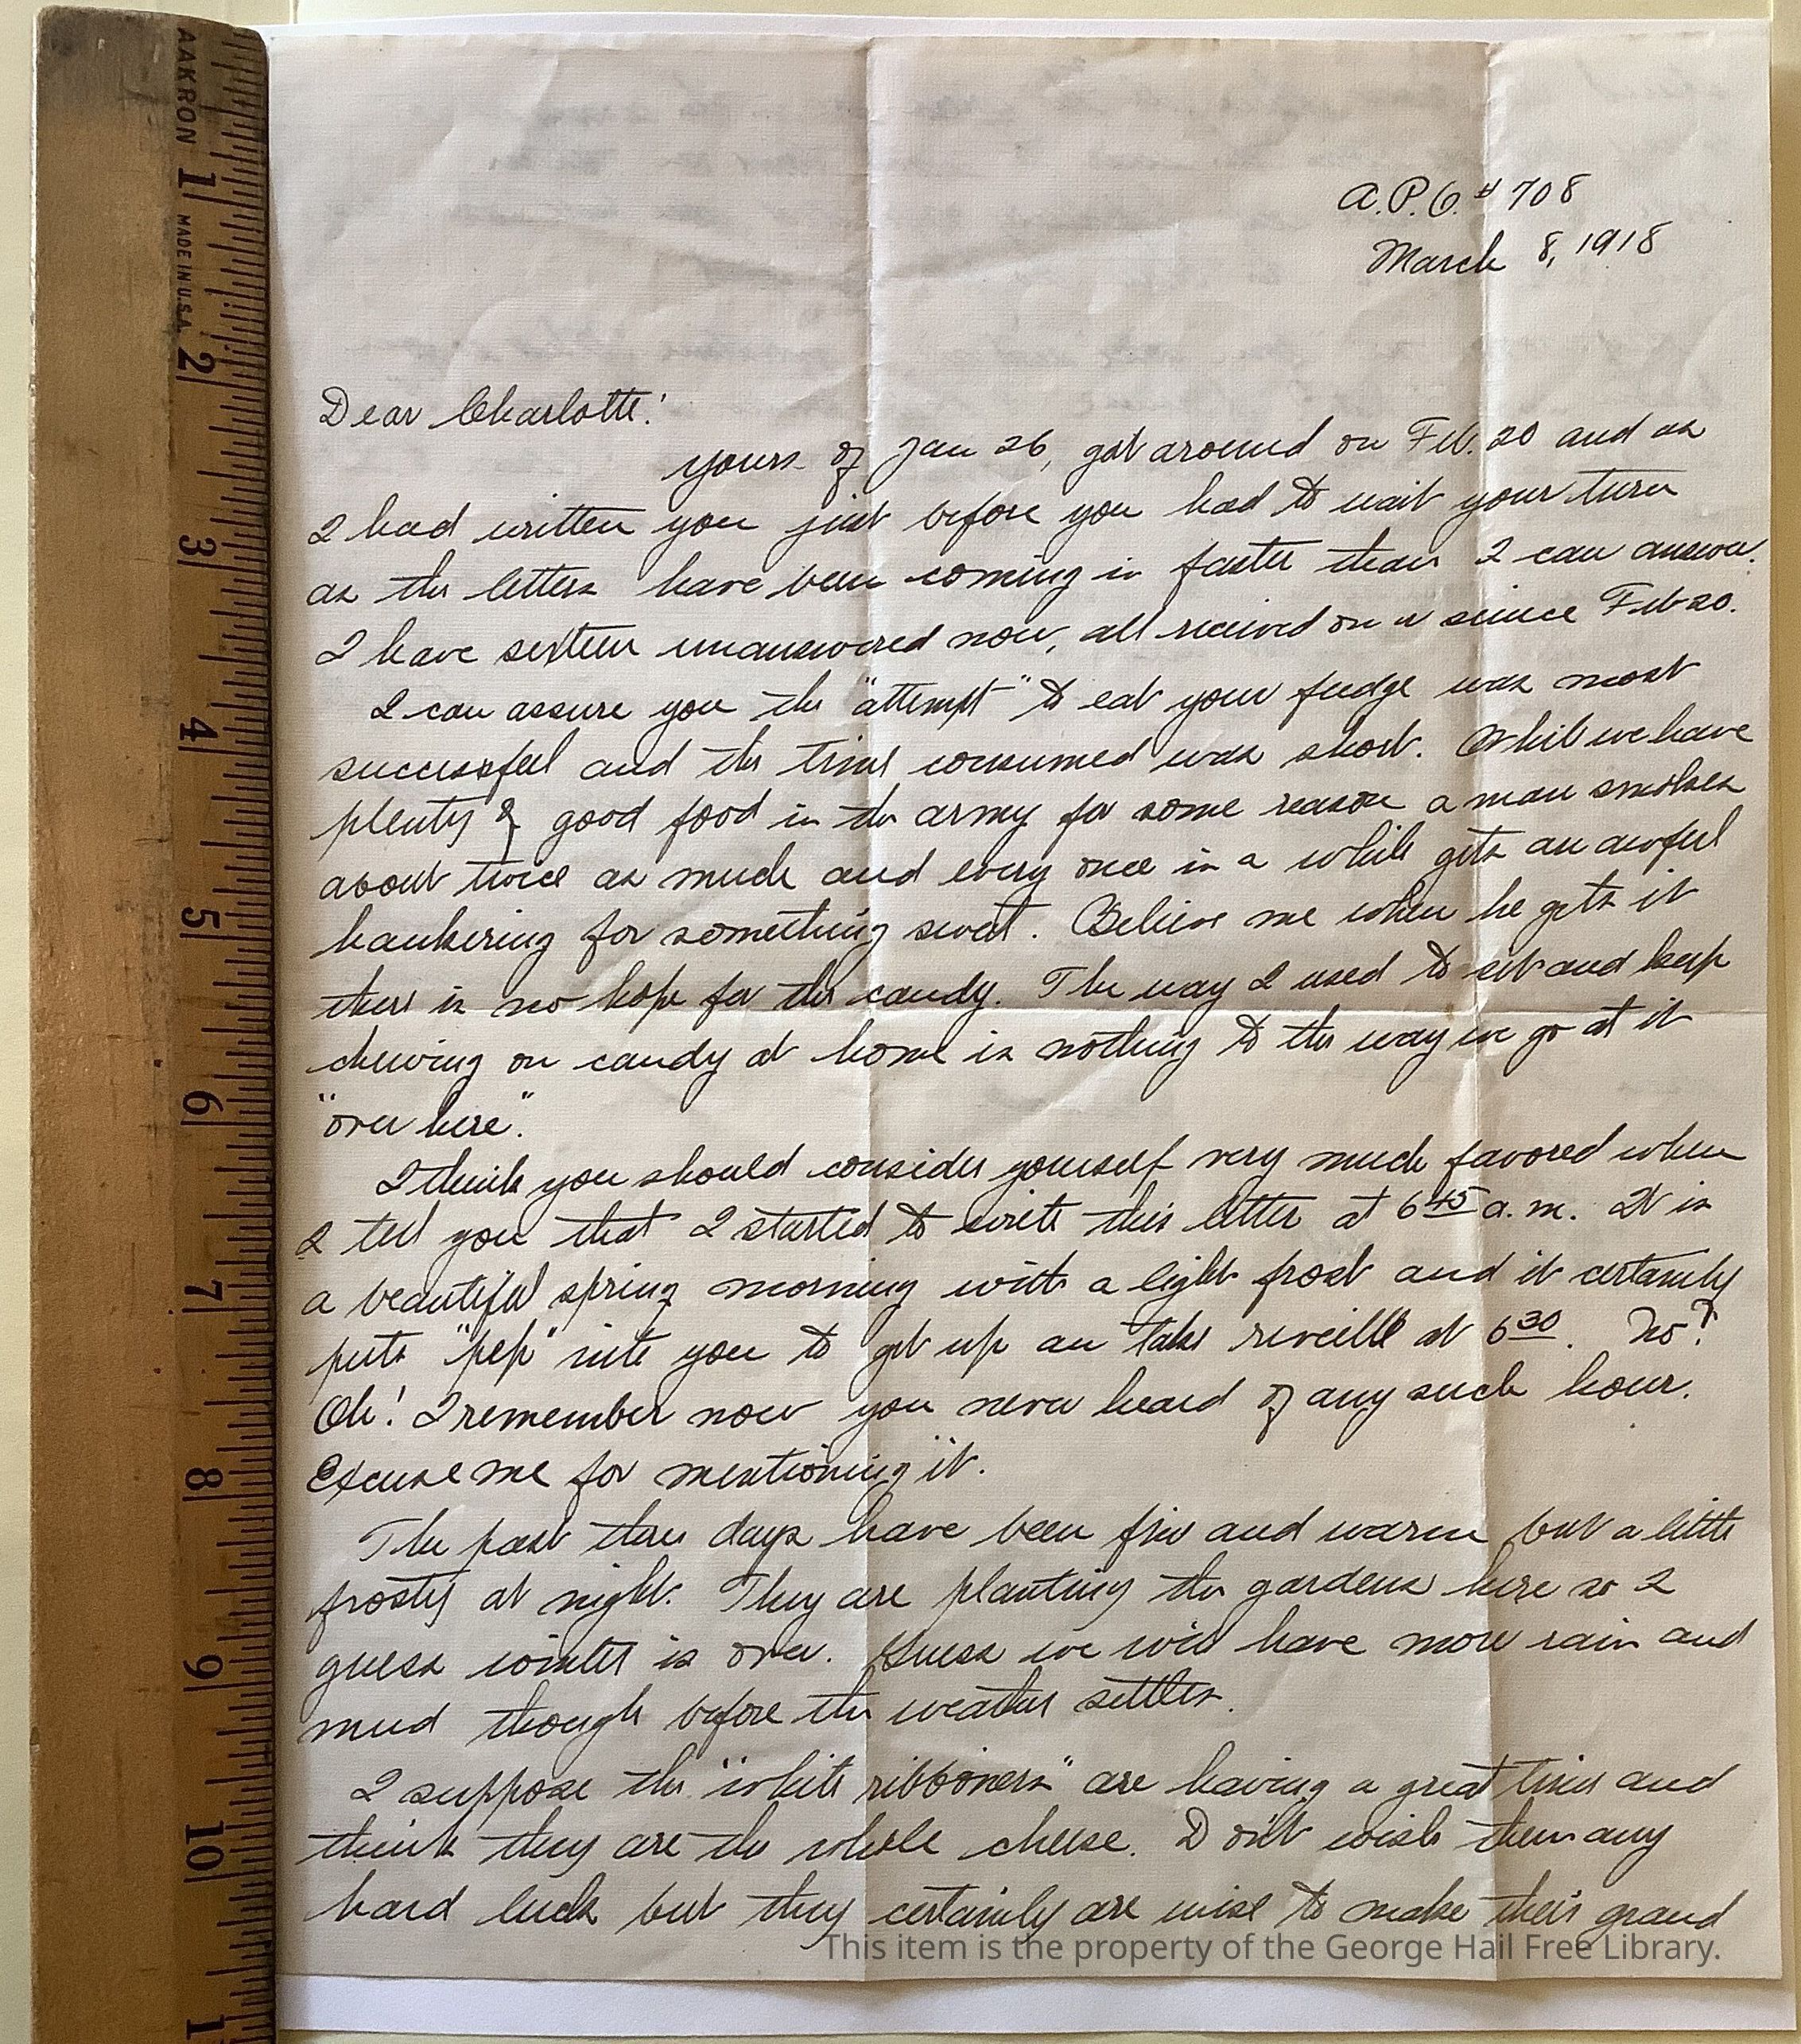 A.P.O. # 708
March 8, 1918
Dear Charlotte:
Yours of Jan 26, got around on Feb. 20 and as
I had written you just before you had to wait your turn
as the letters have been coming in faster than I can answer.
I have sixteen unanswered now, all received on or since Feb 20.
I can assure you the "attempt" to eat your fudge was most
successful and the time consumed was short. While we have
plenty of good food in the army for some reason a man smokes
about twice as much and every once in a while gets an awful
hankering for something sweet. Believe me when he gets it
there is no hope for the candy. The way I used to set and keep
chewing on candy at home is nothing to the way we go at it
"over here".
I think you should consider yourself very much favored when
I tell you that I started to write this letter at 6 45 a.m. It is
a beautiful spring morning with a light frost and it certainly
puts "pep" into you to get up an take reveille at 6 30. No?
Oh! I remember now you never heard of any such hour.
Excuse me for mentioning it.
The past three days have been fine and warm but a little
frosty at night. They are planting the gardens here so I
guess winter is over. Guess we will have more rain and
mud though before the weather settles.
I suppose the "white ribboners" are having a great time and
think they are the whole cheese. Don't wish them any
hard luck but they certainly are wise to make their grand
This item is the property of the George Hail Free Library.
AAKRON
MADE IN U.S.A.
1
2
3
4
5
6
7
8
9
10
1